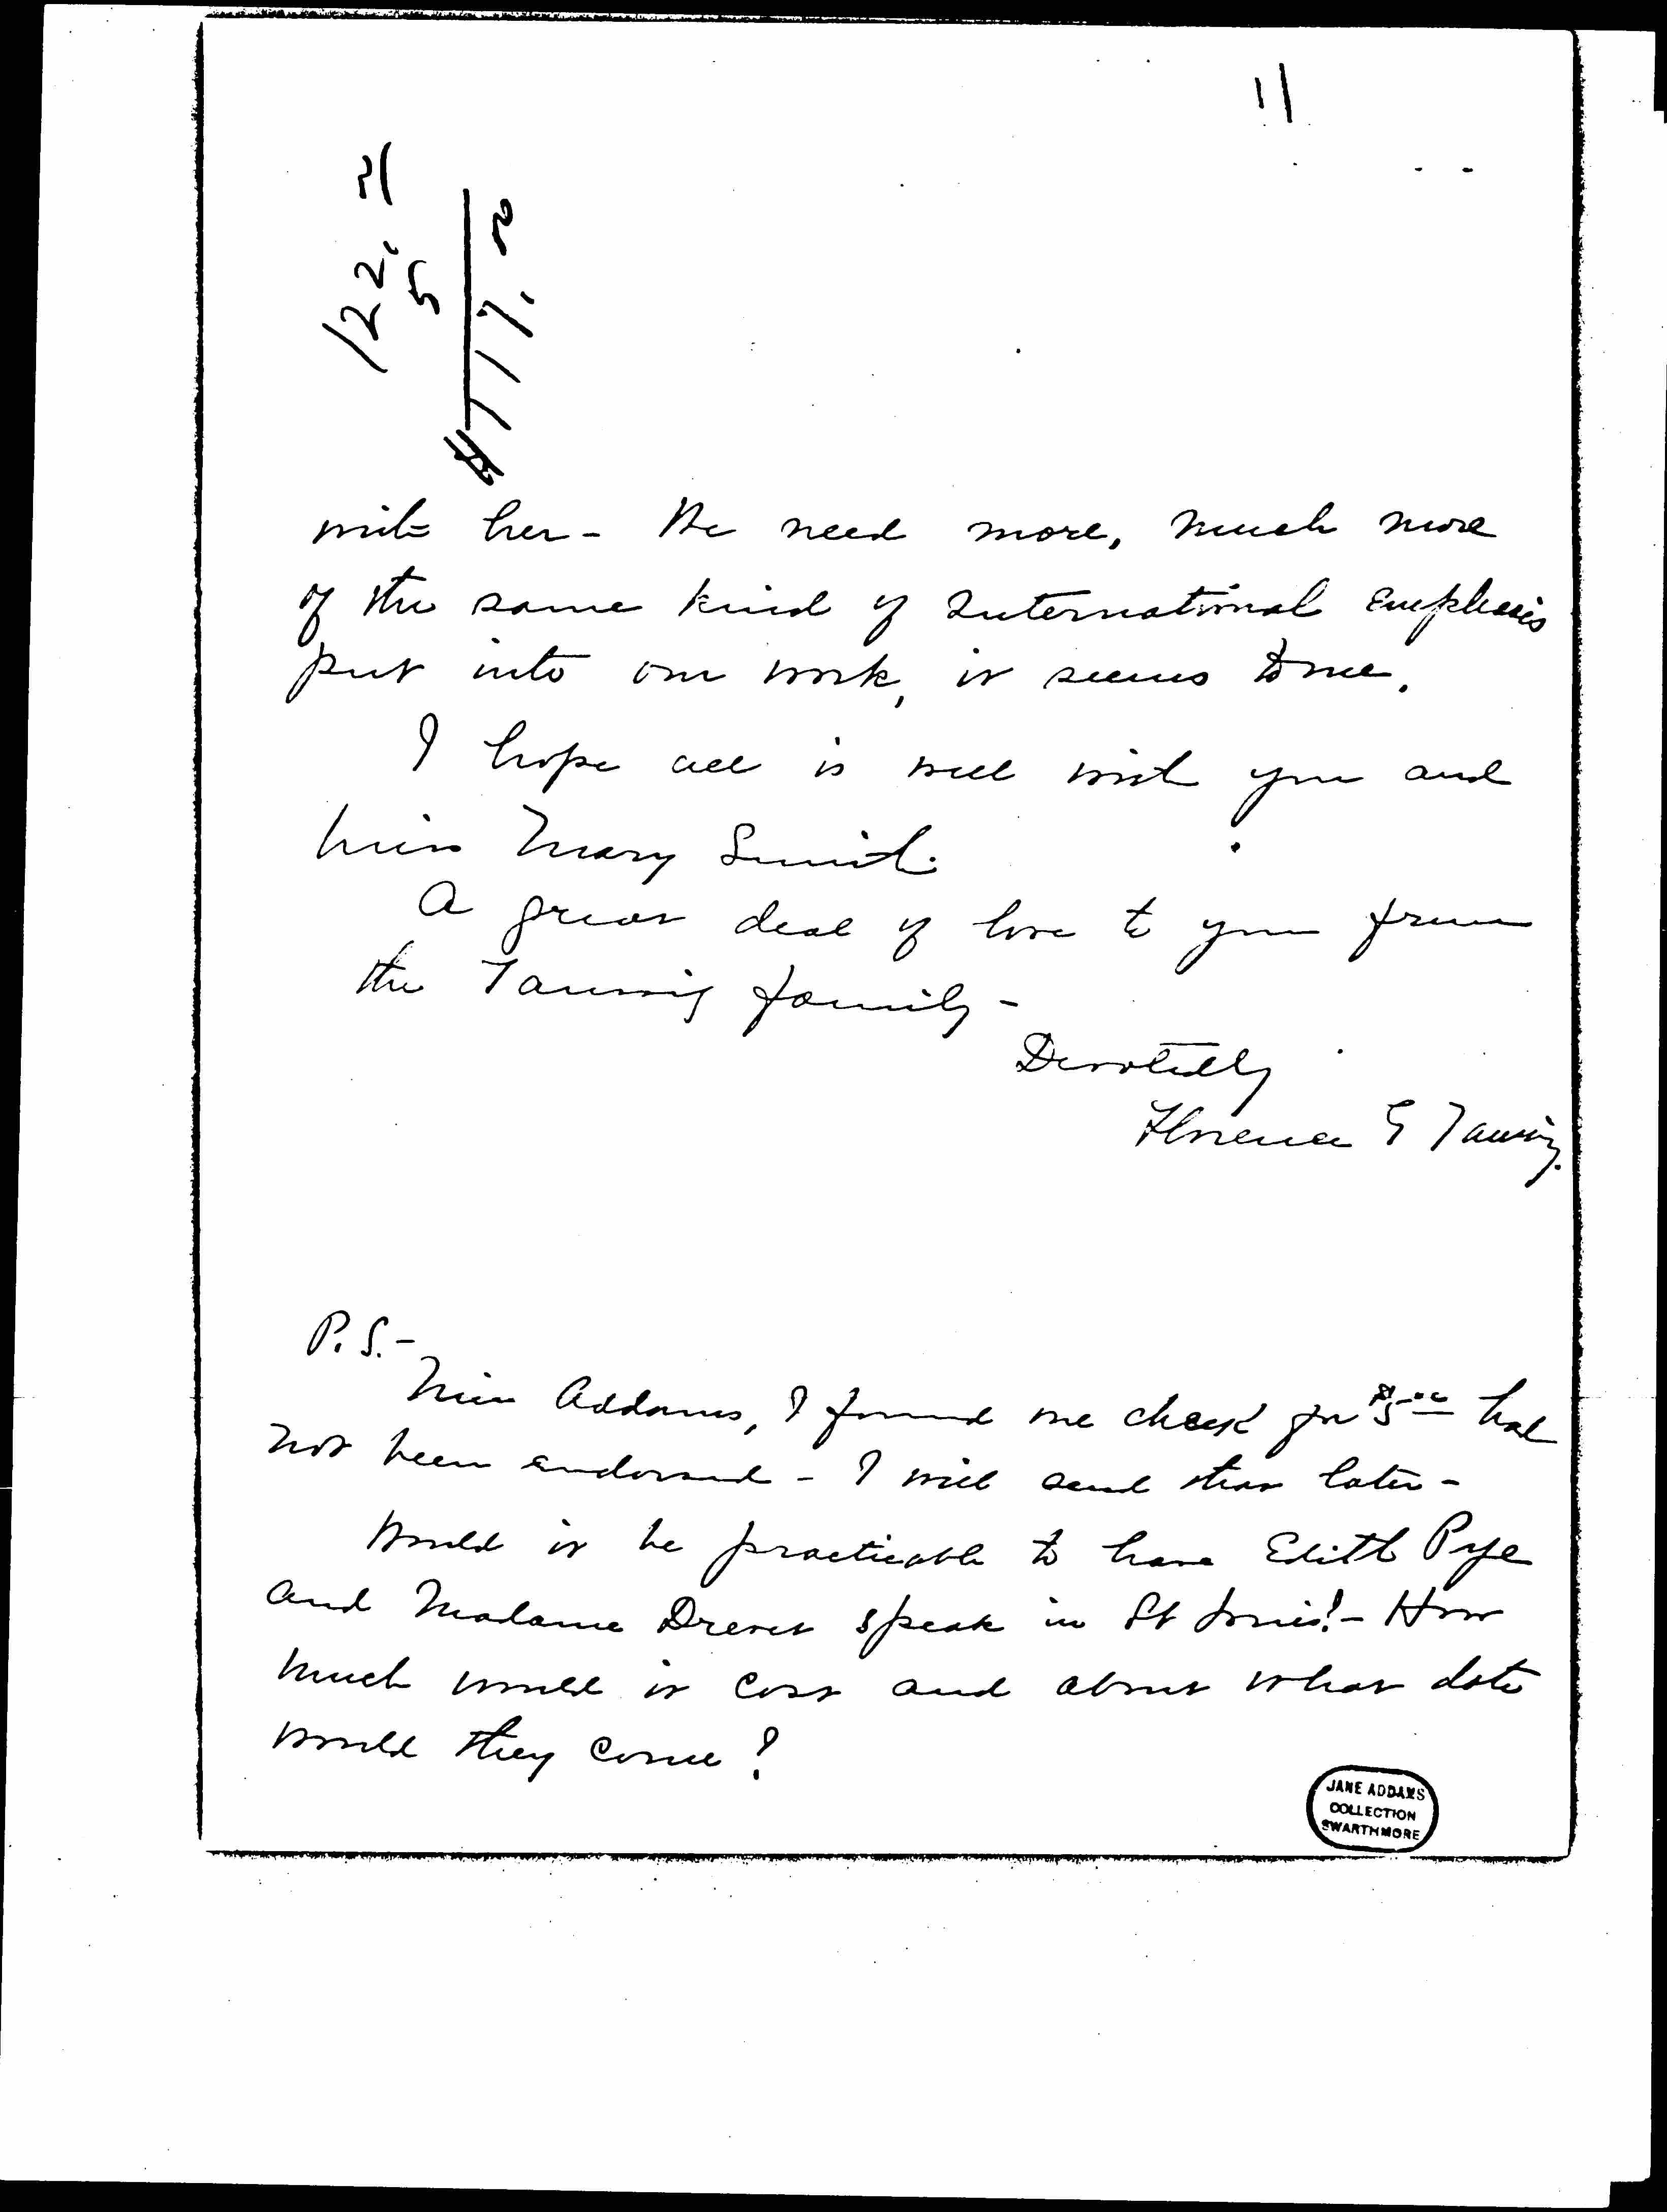 11
122.00
5
$117.00
with her - We need more, much more
of the same kind of International Emphasis
put into our work, it seems to me.
I hope all is well with you and
Miss Mary Smith.
A great deal of love to you from
the Taussig family -
Devotedly
Florence G Taussig.
P.S. -
Miss Addams, I found one check for $5.00 had
not been endorsed - I will send that later -
Would it be practicable to have Edith Pye
and Madame Drevet speak in St Louis? - How
much would it cost and about what date
would they come?
JANE ADDAMS
COLLECTION
SWARTHMORE